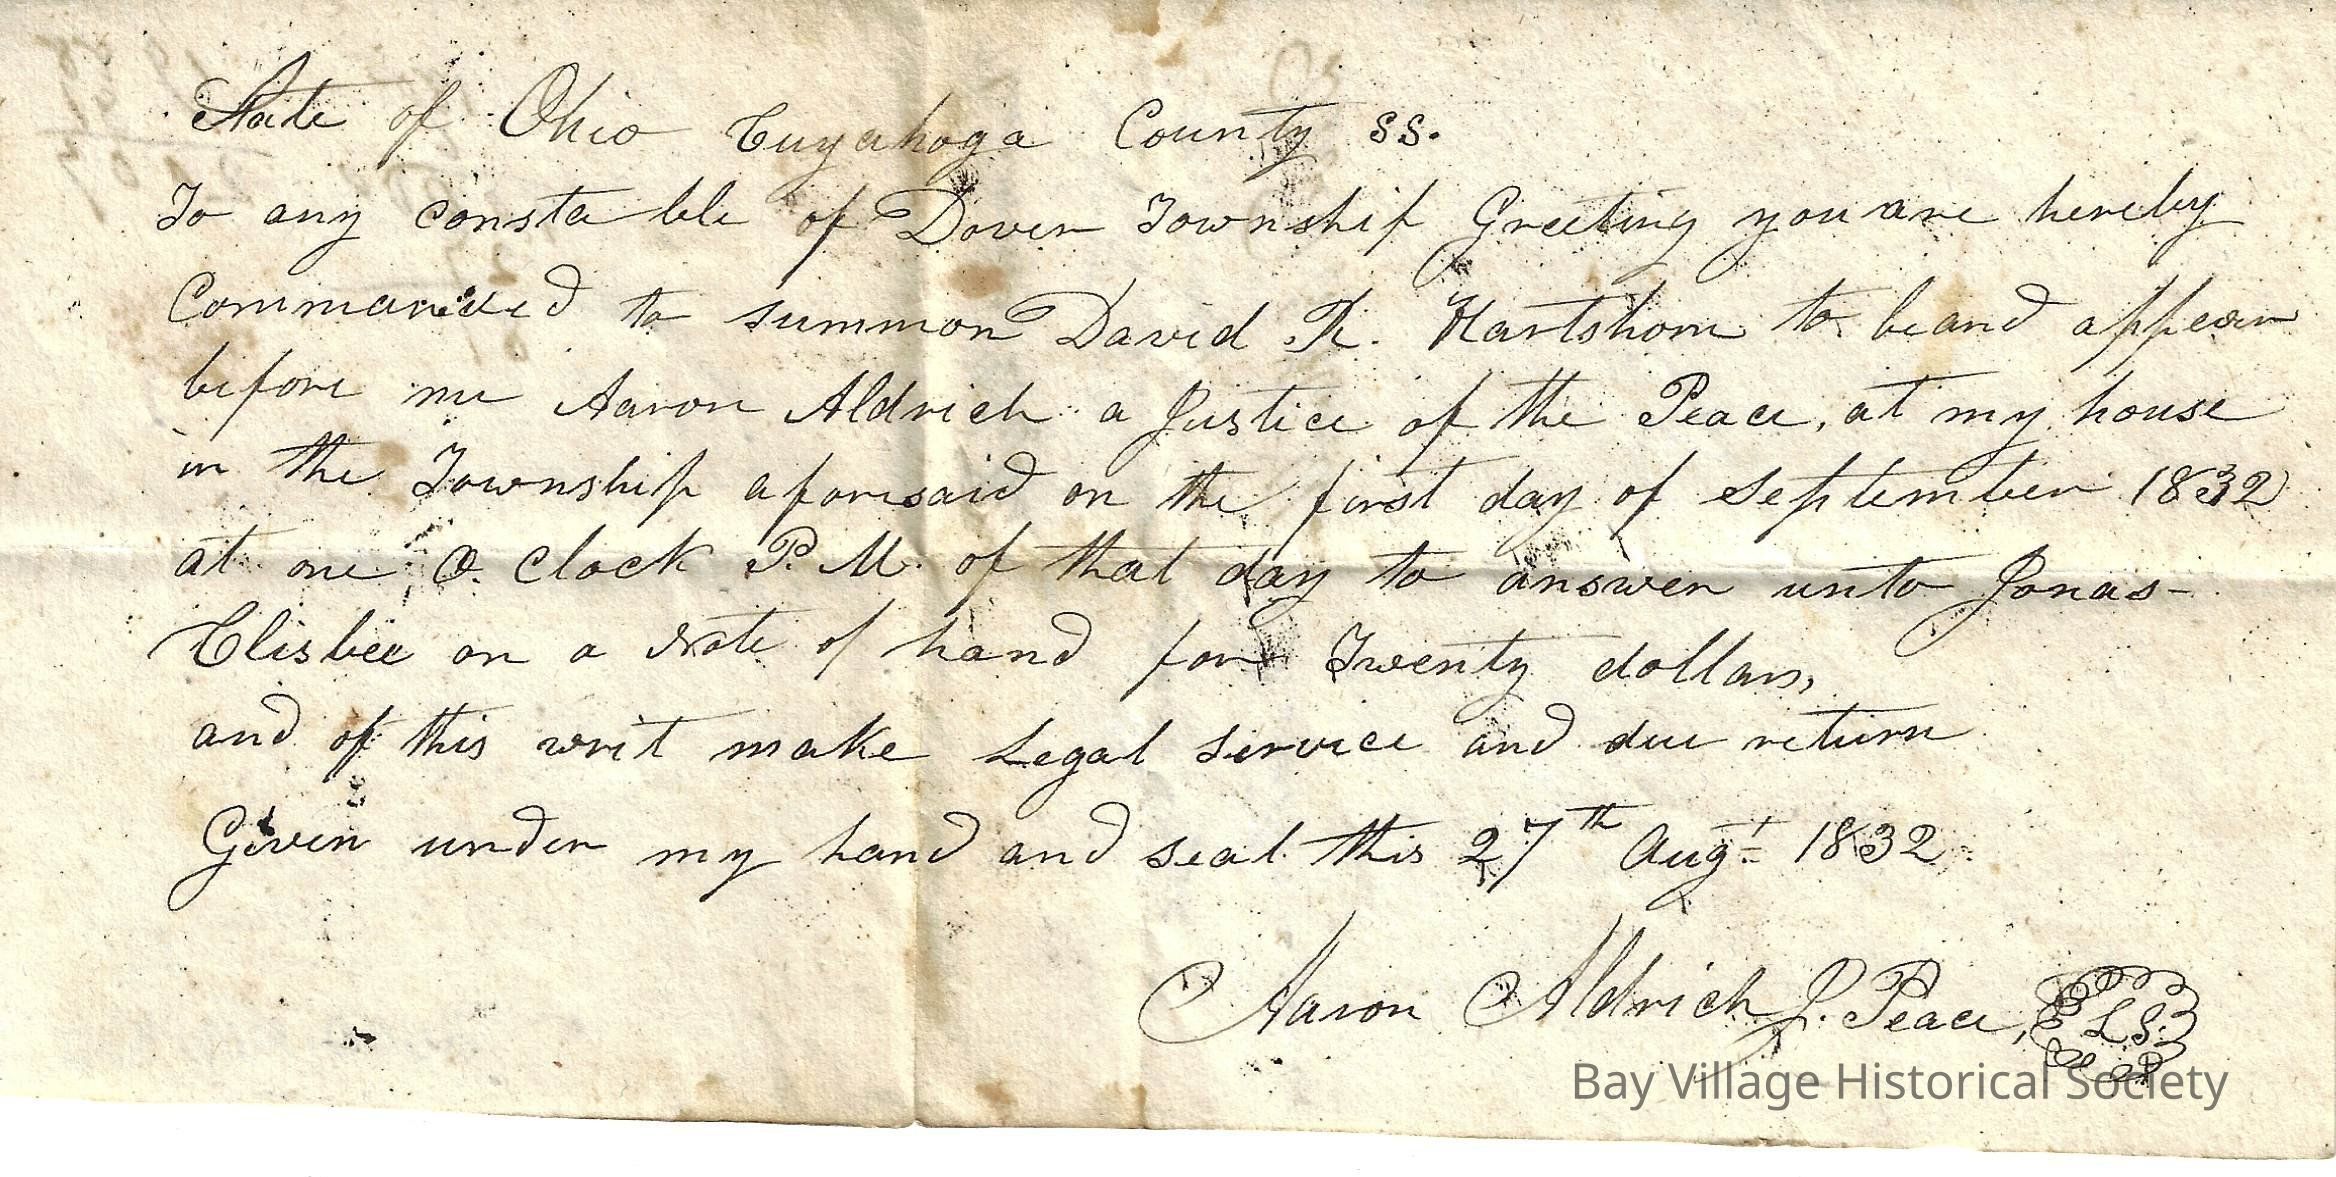 State of Ohio Cuyahoga County ss.
To any constable of Dover Township Greeting you are hereby
Commanded to summon David R. Hartshorn to be and appear
before me Aaron Aldrich a Justice of the Peace, at my house
in the Township aforesaid on the first day of September 1832
at one O. Clock P. M. of that day to answer unto Jonas-
Clisbee on a Note of hand for Twenty dollars,
and of this writ make Legal Service and due return
Given under my hand and seal this 27th Augt 1832
Aaron Aldrich J. Peace, L S.
Bay Village Historical Society